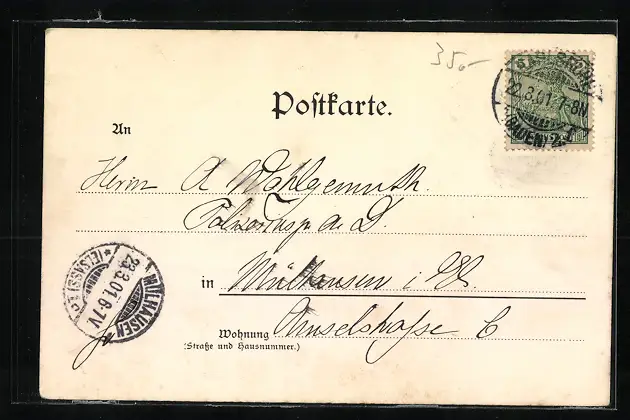 35.-
KARLSRUHE
22.3.01.7-8N
(BADEN) 2.
Postkarte.
An
Herrn A Wohlgemuth.
a. D.
in Mülhausen i. Els.
Wohnung Amselstrasse 6
(Straße und Hausnummer.)
MÜLHAUSEN
23.3.01.6-7V
*(ELSASS) 1 c